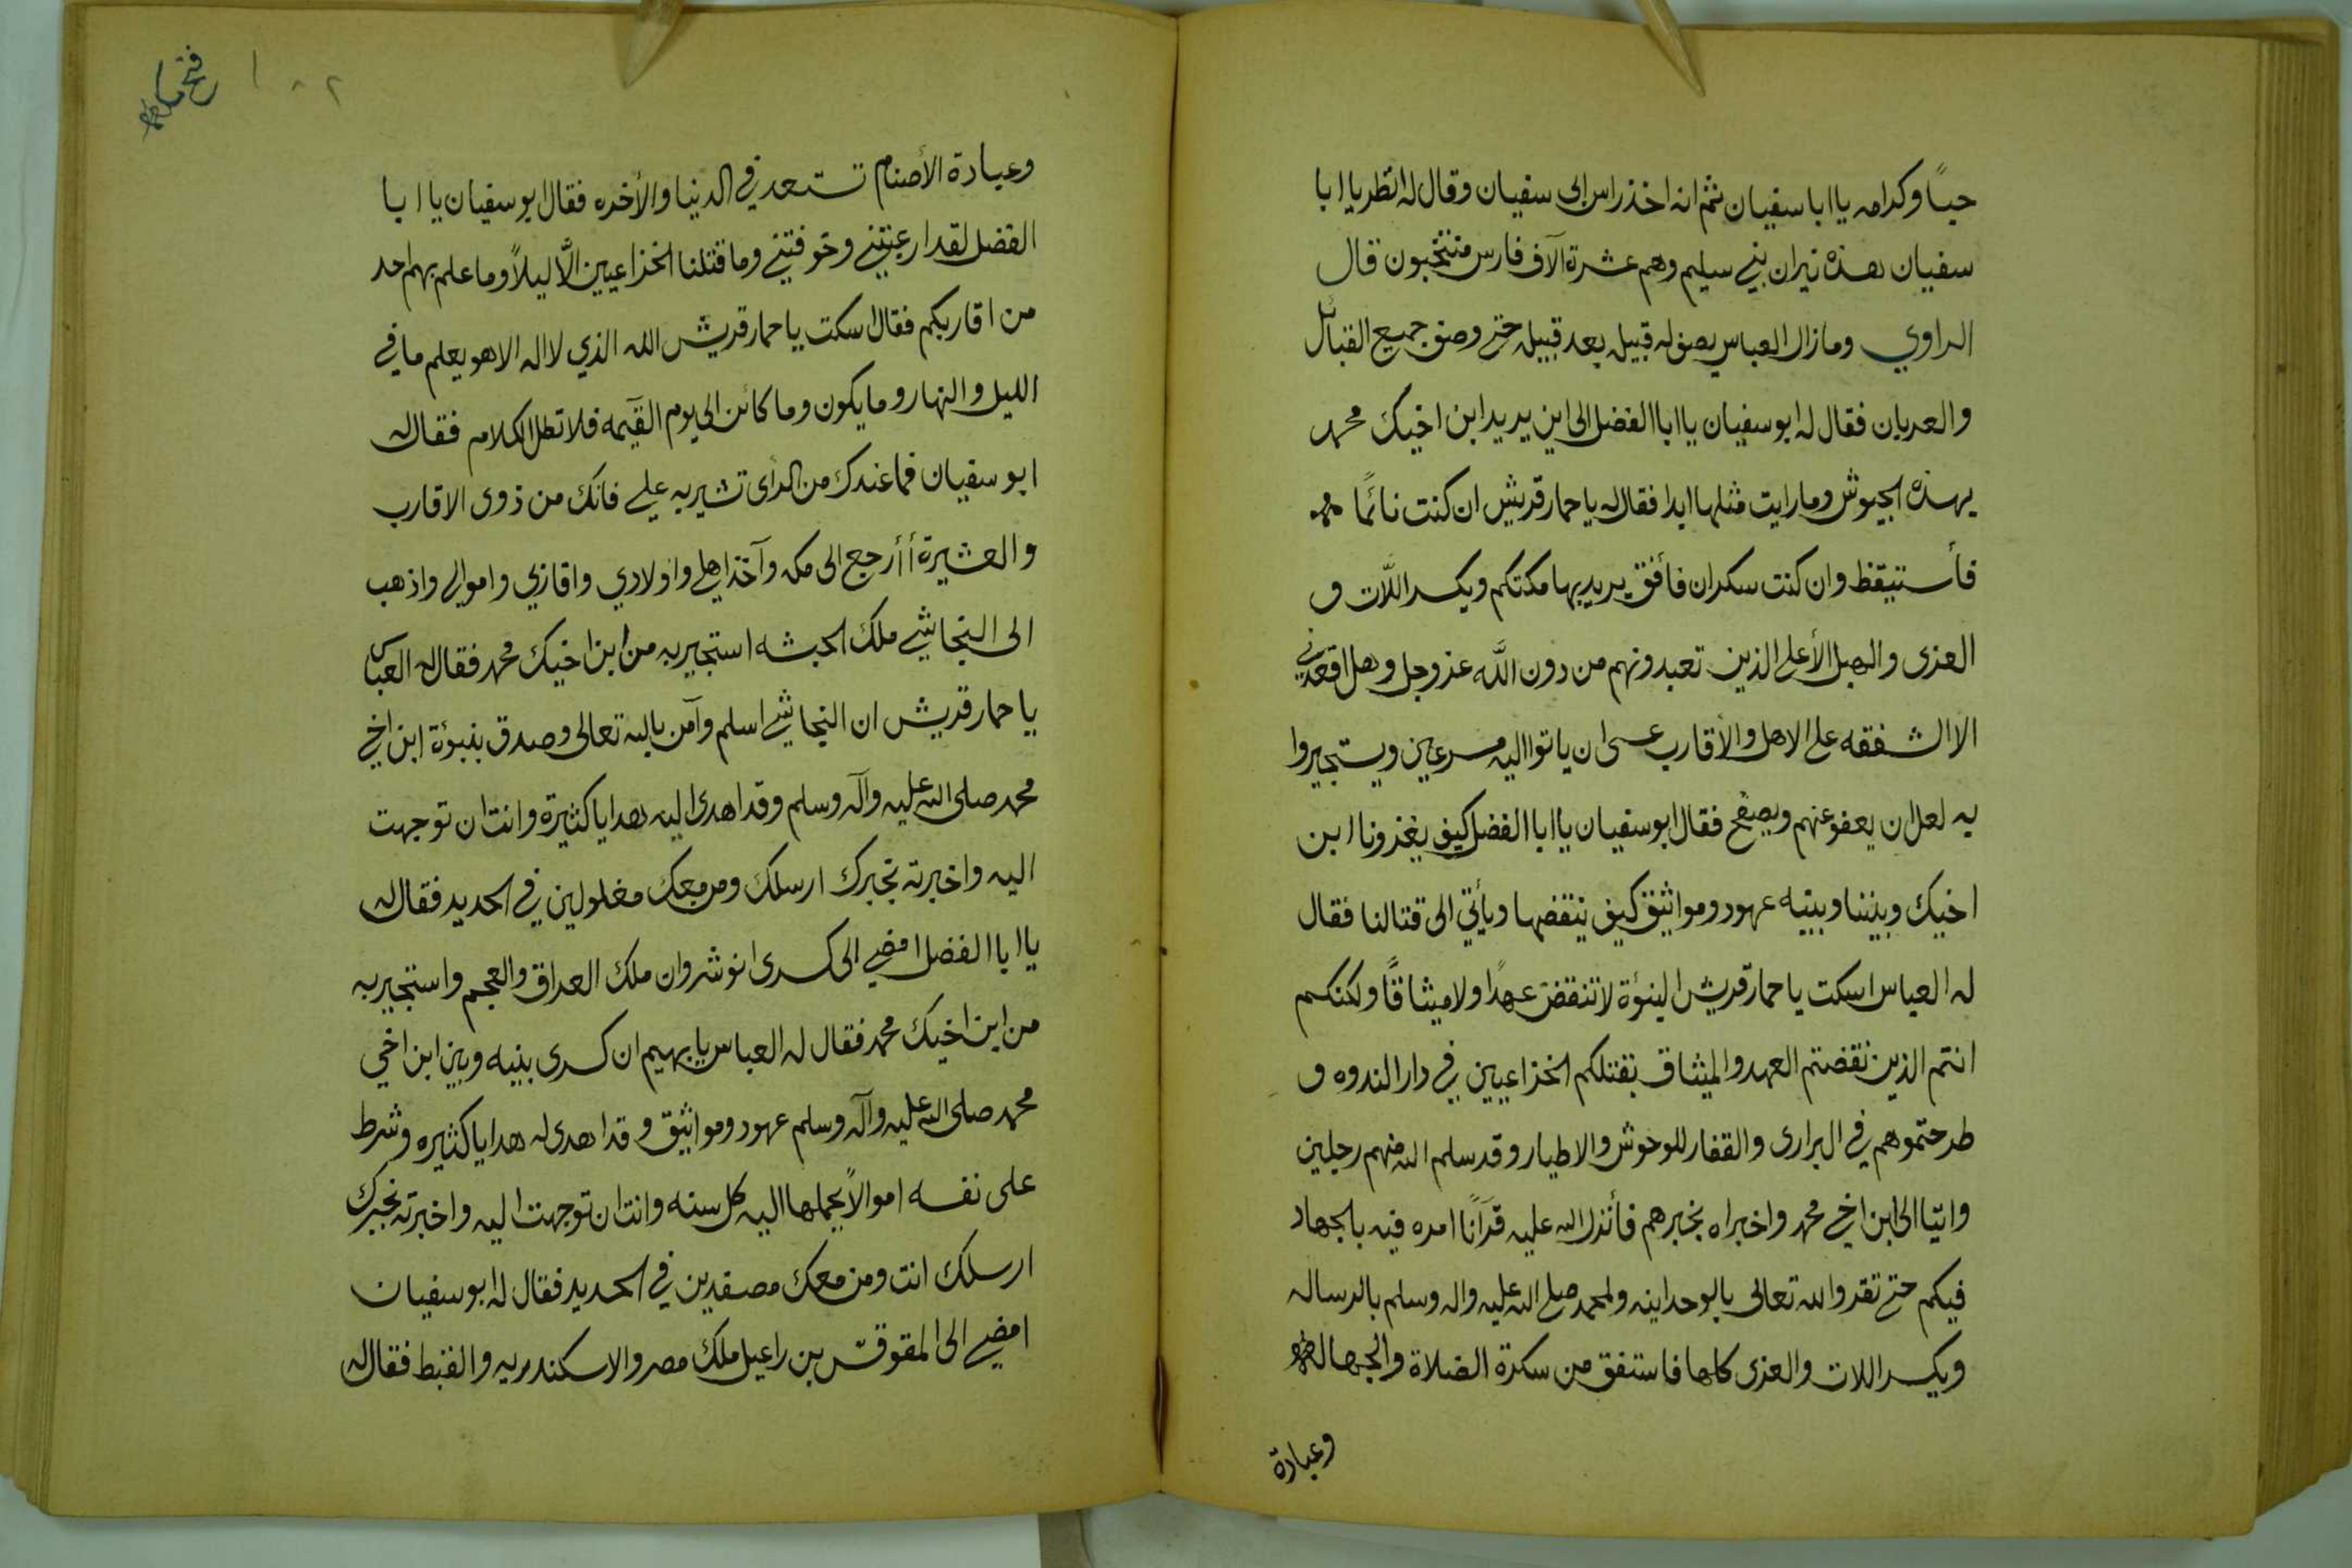 حباً وكرامه يا ابا سفيان ثم انه اخذ راس ابى سفيان وقال له انظر يا ابا
سفيان هذه نيران بني سليم وهم عشرة آلاف فارس منتخبون قال
الراوي وما زال العباس يصف له قبيله بعد قبيله حتى وصف جميع القبائل
والعربان فقال له ابو سفيان يا ابا الفضل الى اين يريد ابن اخيك محمد
بهذه الجيوش وما رايت مثلها ابدا فقال له يا حمار قريش ان كنت نائمًا
فأستيقظ وان كنت سكران فأفق يريد بها مكتكم ويكسر اللّات و
العزى والهبل الأعلى الذين تعبدونهم من دون اللّه عز وجل وهل اقعدني
الا الشفقه على الاهل والأقارب عسى ان ياتوا اليه مسرعين ويستجيروا
به لعل ان يعفو عنهم ويصفح فقال ابو سفيان يا ابا الفضل كيف يغزونا ابن
اخيك وبيننا وبينه عهود ومواثيق كيف ينقضها ويأتي الى قتالنا فقال
له العباس اسكت يا حمار قريش النبؤة لا تنقض عهدًا ولا ميثاقًا ولكنكم
انتم الذين نقضتم العهد والميثاق بقتلكم الخزاعيين في دار الندوه و
طرحتموهم في البرارى والقفار للوحوش والاطيار وقد سلم الله منهم رجلين
واتيا الى ابن اخي محمد واخبراه بخبرهم فأنزل الله عليه قرآنًا امره فيه بالجهاد
فيكم حتى تقروا لله تعالى بالوحدانيه ولمحمد صلى الله عليه واله وسلم بالرساله
ويكسر اللات والعزى كلها فاستفق من سكرة الضلاة والجهاله
وعبادة
فتح مكه
١٠٢
وعبادة الأصنام تستعد في الدنيا والأخره فقال ابو سفيان يا ابا
الفضل لقد ارعبتني وخوفتني وما قتلنا الخزاعيين الّا ليلاً وما علم بهم احد
من اقاربكم فقال اسكت يا حمار قريش الله الذي لا اله الا هو يعلم ما في
الليل والنهار وما يكون وما كائن الى يوم القيمه فلا تطل الكلام فقال له
ابو سفيان فما عندك من الرأى تشير به علي فانك من ذوى الاقارب
والعشيرة أأرجع الى مكه وآخذ اهلي واولادي واقاربي واموالي واذهب
الى النجاشي ملك الحبشه استجير به من ابن اخيك محمد فقال له العباس
يا حمار قريش ان النجاشي اسلم وآمن بالله تعالى وصدق بنبؤة ابن اخي
محمد صلى الله عليه وآله وسلم وقد اهدى اليه هدايا كثيرة وانت ان توجهت
اليه واخبرته بخبرك ارسلك ومن معك مغلولين في الحديد فقال له
يا ابا الفضل امضي الى كسرى انوشروان ملك العراق والعجم واستجير به
من ابن اخيك محمد فقال له العباس يا بهيم ان كسرى بينه وبين ابن اخي
محمد صلى الله عليه وآله وسلم عهود ومواثيق وقد اهدى له هدايا كثيره وشرط
على نفسه اموالاً يحملها اليه كل سنه وانت ان توجهت اليه واخبرته بخبرك
ارسلك انت ومن معك مصفدين في الحديد فقال له ابو سفيان
امضي الى المقوقس بن راعيل ملك مصر والاسكندريه والقبط فقال له